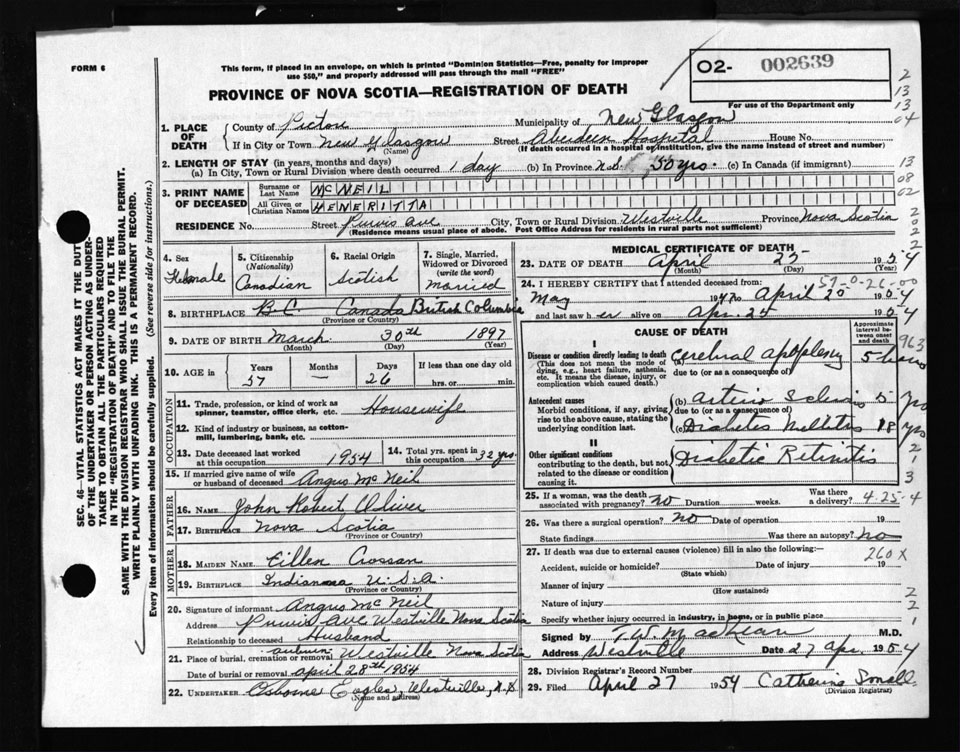 FORM 6
This form, if placed in an envelope, on which is printed "Dominion Statistics—Free, penalty for improper
use $50," and properly addressed will pass through the mail "FREE"
O2- 002639
For use of the Department only
PROVINCE OF NOVA SCOTIA—REGISTRATION OF DEATH
2
13
13
04
1. PLACE OF DEATH
County of Pictou Municipality of New Glasgow
If in City or Town New Glasgow Street Aberdeen Hospital House No.
(Name) (If death occurred in a hospital or institution, give the name instead of street and number)
2. LENGTH OF STAY (in years, months and days)
(a) In City, Town or Rural Division where death occurred 1 day (b) In Province N.S. 50 yrs. (c) In Canada (if immigrant)
13
08
02
3. PRINT NAME OF DECEASED
Surname or Last Name MCNEIL
All Given or Christian Names HENERITTA
RESIDENCE No. Street Purvis Ave City, Town or Rural Division Westville Province Nova Scotia
(Residence means usual place of abode. Post Office Address for residents in rural parts not sufficient)
4. Sex
Female
5. Citizenship
(Nationality)
Canadian
6. Racial Origin
Scotish
7. Single, Married,
Widowed or Divorced
(write the word)
married
8. BIRTHPLACE B.C. Canada British Columbia
(Province or Country)
9. DATE OF BIRTH March 30th 1897
(Month) (Day) (Year)
10. AGE in
Years Months Days If less than one day old
57 — 26 hrs. or min.
OCCUPATION
11. Trade, profession, or kind of work as
spinner, teamster, office clerk, etc. Housewife
12. Kind of industry or business, as cotton-
mill, lumbering, bank, etc.
13. Date deceased last worked
at this occupation 1954
14. Total yrs. spent in
this occupation 32 yrs.
15. If married give name of wife
or husband of deceased Angus McNeil
FATHER
16. Name John Robert Oliver
17. Birthplace Nova Scotia
(Province or Country)
MOTHER
18. Maiden Name Eillen Crossan
19. Birthplace Indianna U.S.A.
(Province or Country)
20. Signature of informant Angus McNeil
Address Purvis Ave Westville Nova Scotia
Relationship to deceased Husband
21. Place of burial, cremation or removal auburn Westville Nova Scotia
Date of burial or removal april 28th 1954
22. UNDERTAKER Osborne Eagles, Westville, N.S.
(Name and address)
MEDICAL CERTIFICATE OF DEATH
23. DATE OF DEATH April 25 1954
(Month) (Day) (Year)
24. I HEREBY CERTIFY that I attended deceased from: 57-0-26-00
May 1947 to April 25 1954
and last saw her alive on Apr. 25 1954
CAUSE OF DEATH
Approximate
interval be-
tween onset
and death
963
I
Disease or condition directly leading to death
(This does not mean the mode of
dying, e.g., heart failure, asthenia,
etc. It means the disease, injury, or
complication which caused death.)
(a) Cerebral apoplexy 5 hours
due to (or as a consequence of)
Antecedent causes
Morbid conditions, if any, giving
rise to the above cause, stating the
underlying condition last.
(b) Arterio Sclerosis 5 yrs
due to (or as a consequence of)
(c) Diabetes Mellitis 18 yrs
II
Other significant conditions
contributing to the death, but not
related to the disease or condition
causing it.
Diabetic Retinitis
2
1
3
25. If a woman, was the death
associated with pregnancy? no Duration weeks. Was there
a delivery? 4.25-4
26. Was there a surgical operation? no Date of operation 19
State findings Was there an autopsy? no
27. If death was due to external causes (violence) fill in also the following:— 260X
Accident, suicide or homicide? Date of injury 19
(State which)
Manner of injury
(How sustained)
Nature of injury
Specify whether injury occurred in industry, in home, or in public place
2
2
1
Signed by M.D.
Address Westville Date 27 Apr. 1954
28. Division Registrar's Record Number
29. Filed April 27 1954 Catherine Small
(Division Registrar)
SEC. 46—VITAL STATISTICS ACT MAKES IT THE DUTY
OF THE UNDERTAKER OR PERSON ACTING AS UNDER-
TAKER TO OBTAIN ALL THE PARTICULARS REQUIRED
IN THE "REGISTRATION OF DEATH" AND TO FILE THE
SAME WITH THE DIVISION REGISTRAR WHO SHALL ISSUE THE BURIAL PERMIT.
WRITE PLAINLY WITH UNFADING INK. THIS IS A PERMANENT RECORD.
Every item of information should be carefully supplied. (See reverse side for instructions.)